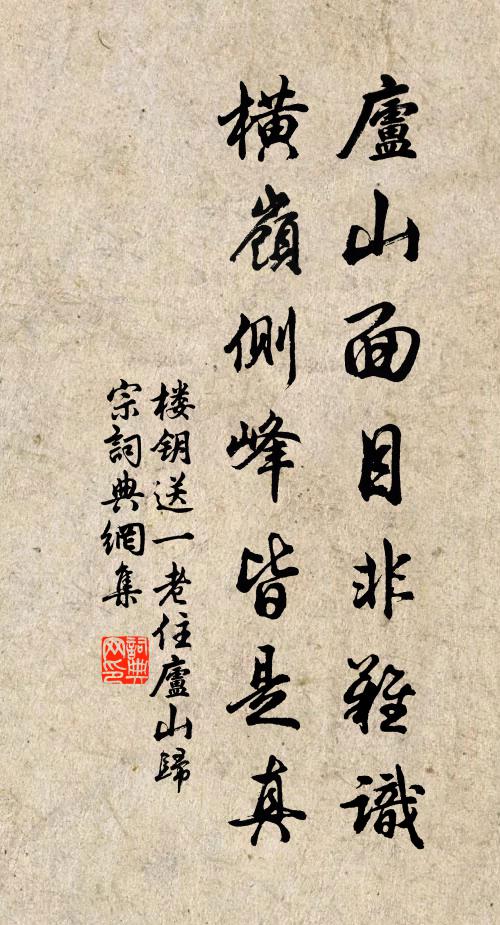 廬山面目非難識
橫嶺側峰皆是真
楼钥送一老住廬山歸
宗詞典網集
詞典
网印